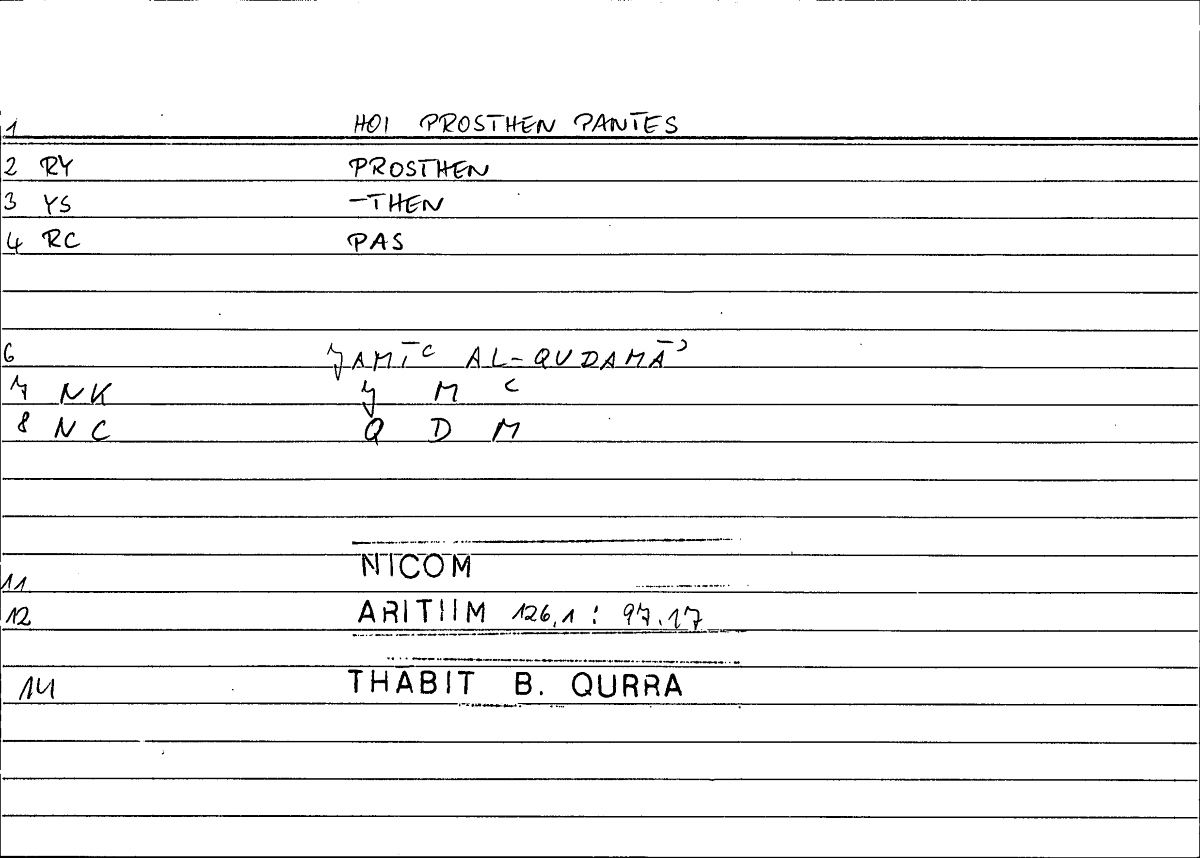 1 HOI PROSTHEN PANTES
2 RY PROSTHEN
3 YS -THEN
4 RC PAS
6 JAMĪʿ AL-QUDAMĀʾ
7 NK J M ʿ
8 NC Q D M
11 NICOM
12 ARITIIM 126,1 : 97.17
14 THĀBIT B. QURRA